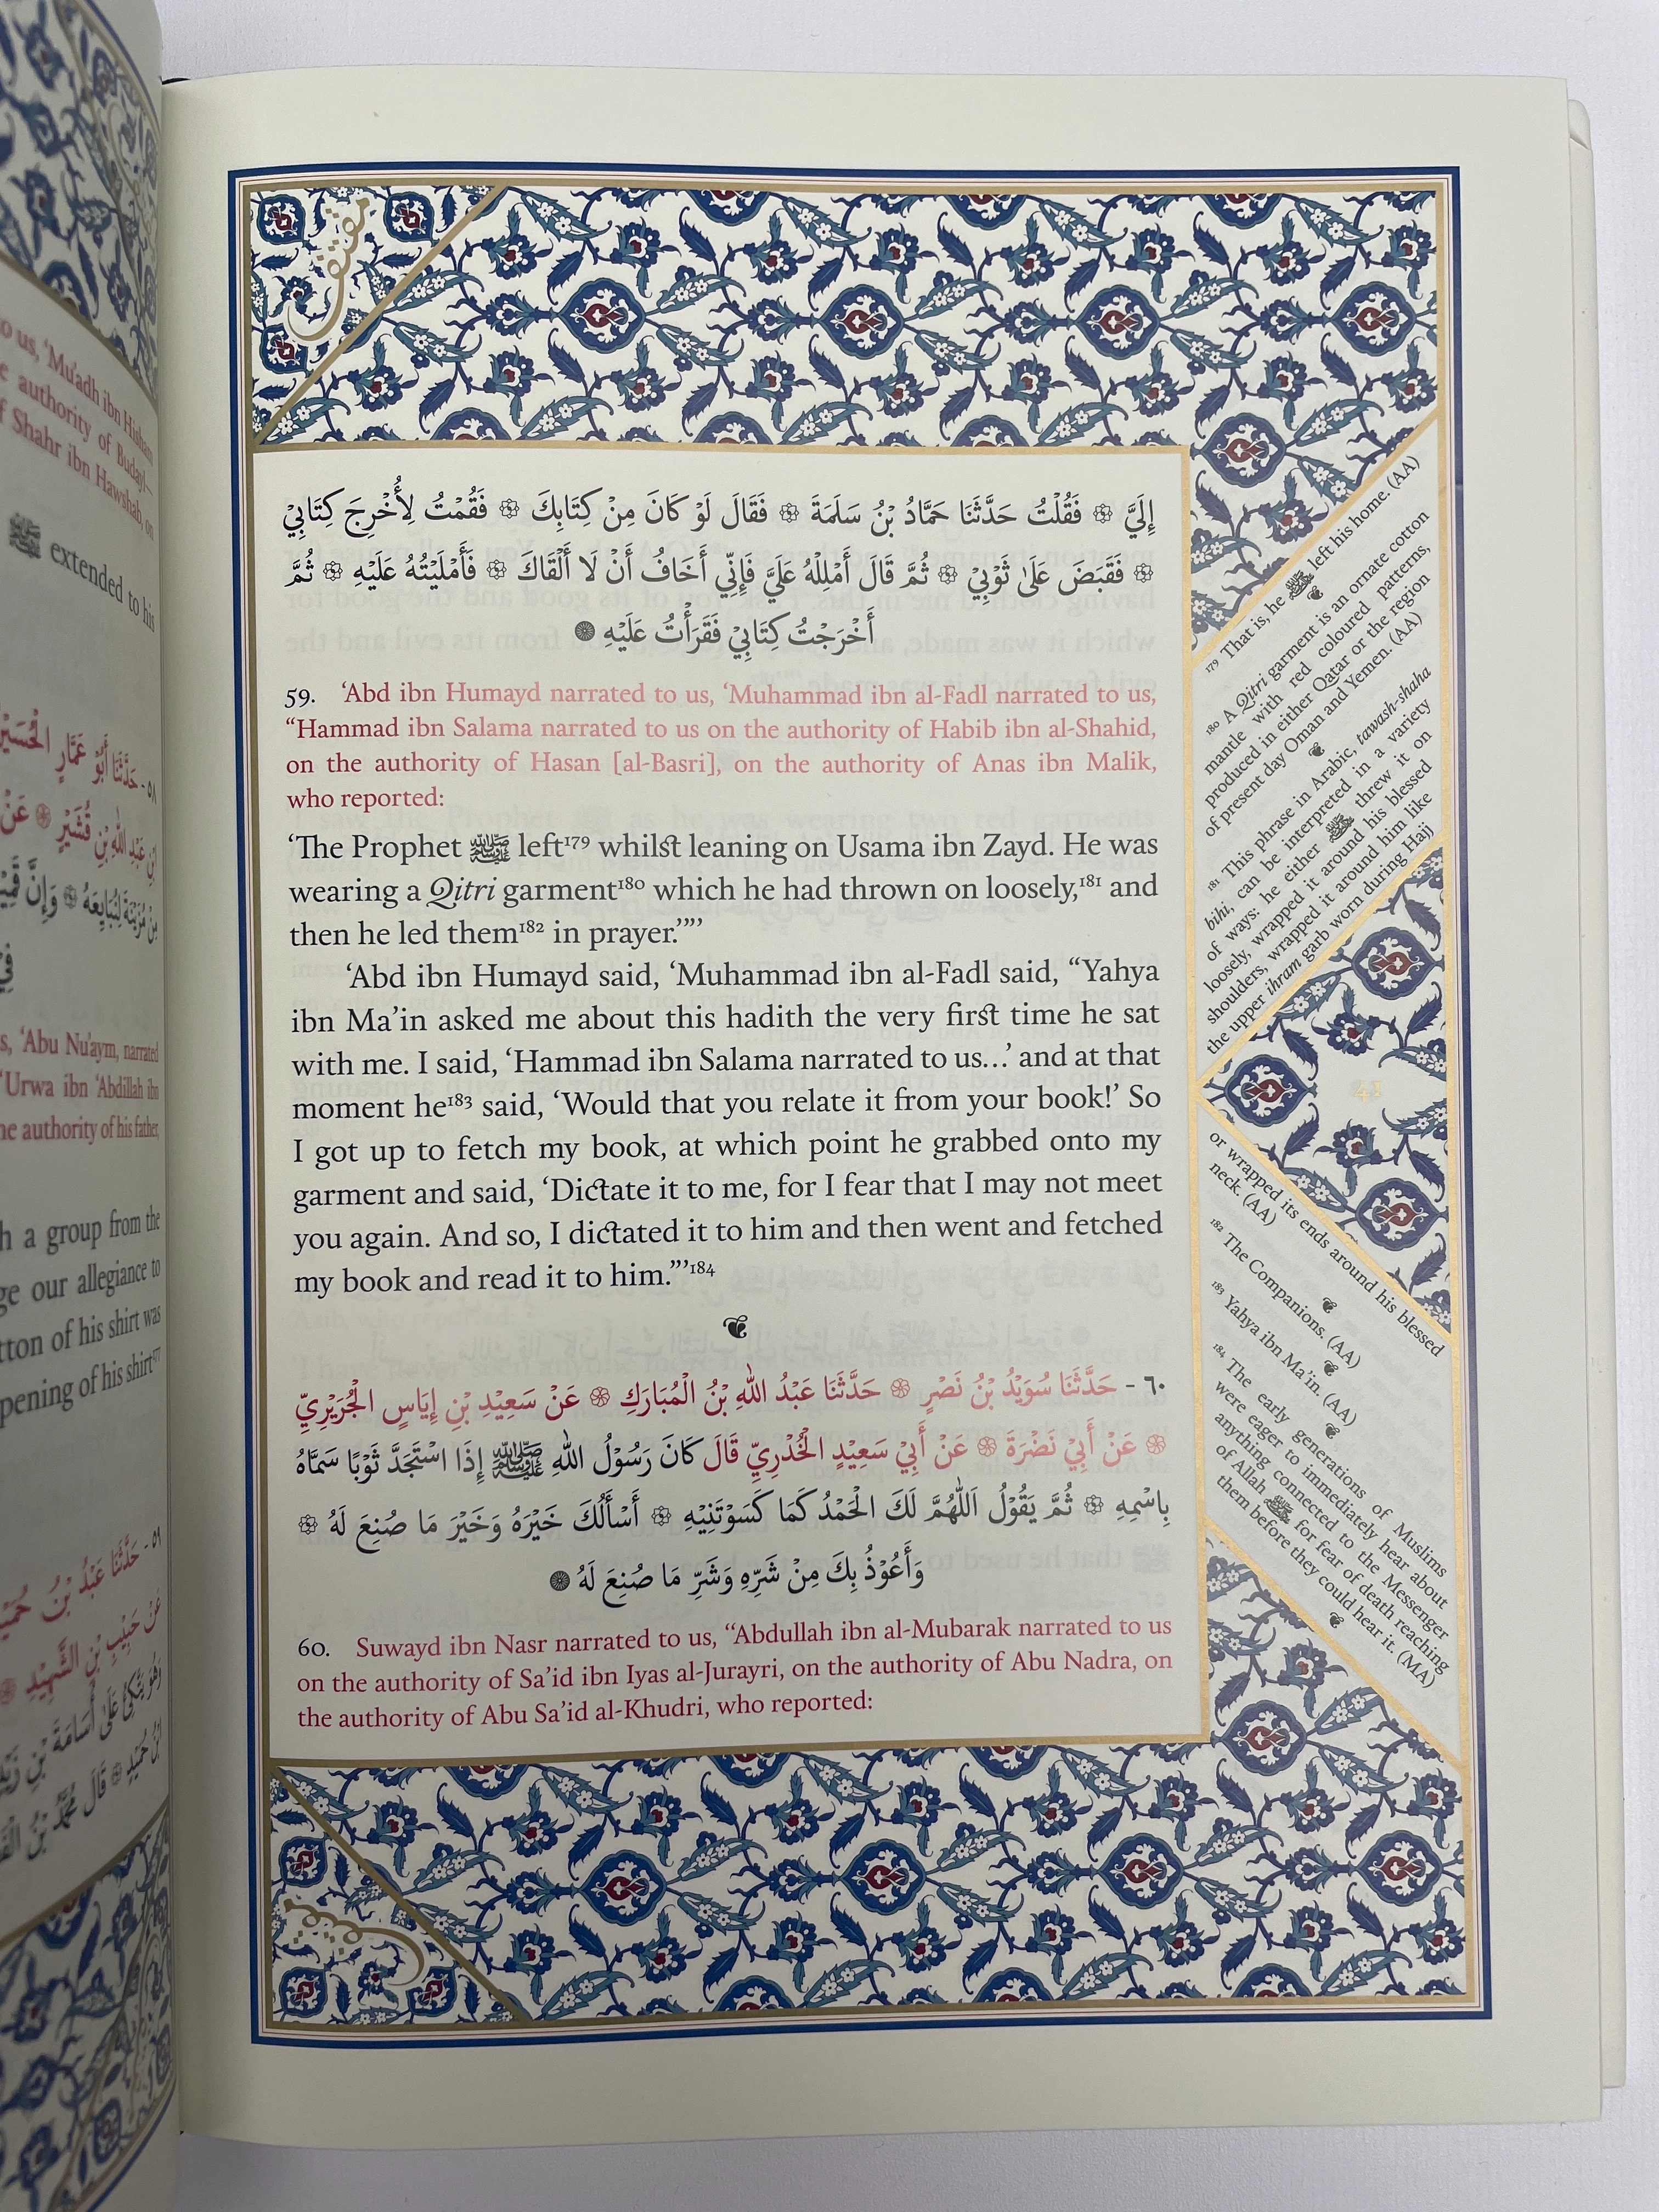 to us, 'Mu'adh ibn Hisham
authority of Budayl—
Shahr ibn Hawshab, on
ﷺ extended to his
٥٨- حَدَّثَنَا أَبُو عَمَّارٍ الْحُسَيْنُ
قُشَيْرٍ ۞ عَنْ
مِنْ مُزَيْنَةَ لِنُبَايِعَهُ ۞ وَإِنَّ
'Abu Nu'aym, narrated
'Urwa ibn 'Abdillah ibn
authority of his father,
a group from the
our allegiance to
of his shirt was
of his shirt¹⁷⁷
٥٩- حَدَّثَنَا عَبْدُ بْنُ
عَنْ حَبِيْبِ بْنِ الشَّهِيْدِ ۞
عَلَى أُسَامَةَ بْنِ
۞ قَالَ مُحَمَّدُ بْنُ
إِلَيَّ ۞ فَقُلْتُ حَدَّثَنَا حَمَّادُ بْنُ سَلَمَةَ ۞ فَقَالَ لَوْ كَانَ مِنْ كِتَابِكَ ۞ فَقُمْتُ لِأُخْرِجَ كِتَابِيْ
۞ فَقَبَضَ عَلَىٰ ثَوْبِيْ ۞ ثُمَّ قَالَ أَمْلِلْهُ عَلَيَّ فَإِنِّي أَخَافُ أَنْ لَا أَلْقَاكَ ۞ فَأَمْلَيْتُهُ عَلَيْهِ ۞ ثُمَّ
أَخْرَجْتُ كِتَابِيْ فَقَرَأْتُ عَلَيْهِ
59. 'Abd ibn Humayd narrated to us, 'Muhammad ibn al-Fadl narrated to us,
"Hammad ibn Salama narrated to us on the authority of Habib ibn al-Shahid,
on the authority of Hasan [al-Basri], on the authority of Anas ibn Malik,
who reported:
'The Prophet ﷺ left¹⁷⁹ whilst leaning on Usama ibn Zayd. He was
wearing a Qitri garment¹⁸⁰ which he had thrown on loosely,¹⁸¹ and
then he led them¹⁸² in prayer.'"'
'Abd ibn Humayd said, 'Muhammad ibn al-Fadl said, "Yahya
ibn Ma'in asked me about this hadith the very first time he sat
with me. I said, 'Hammad ibn Salama narrated to us…' and at that
moment he¹⁸³ said, 'Would that you relate it from your book!' So
I got up to fetch my book, at which point he grabbed onto my
garment and said, 'Dictate it to me, for I fear that I may not meet
you again. And so, I dictated it to him and then went and fetched
my book and read it to him."'¹⁸⁴
٦٠ - حَدَّثَنَا سُوَيْدُ بْنُ نَصْرٍ ۞ حَدَّثَنَا عَبْدُ اللهِ بْنُ الْمُبَارَكِ ۞ عَنْ سَعِيْدِ بْنِ إِيَاسٍ الْجُرَيْرِيِّ
۞ عَنْ أَبِيْ نَضْرَةَ ۞ عَنْ أَبِيْ سَعِيْدٍ الْخُدْرِيِّ قَالَ كَانَ رَسُوْلُ اللهِ ﷺ إِذَا اسْتَجَدَّ ثَوْبًا سَمَّاهُ
بِاسْمِهِ ۞ ثُمَّ يَقُوْلُ اَللّٰهُمَّ لَكَ الْحَمْدُ كَمَا كَسَوْتَنِيْهِ ۞ أَسْأَلُكَ خَيْرَهُ وَخَيْرَ مَا صُنِعَ لَهُ ۞
وَأَعُوْذُ بِكَ مِنْ شَرِّهِ وَشَرِّ مَا صُنِعَ لَهُ
60. Suwayd ibn Nasr narrated to us, "Abdullah ibn al-Mubarak narrated to us
on the authority of Sa'id ibn Iyas al-Jurayri, on the authority of Abu Nadra, on
the authority of Abu Sa'id al-Khudri, who reported:
¹⁷⁹ That is, he ﷺ left his home. (AA)
¹⁸⁰ A Qitri garment is an ornate cotton
mantle with red coloured patterns,
produced in either Qatar or the region
of present day Oman and Yemen. (AA)
¹⁸¹ This phrase in Arabic, tawash-shaha
bihi, can be interpreted in a variety
of ways: he either ﷺ threw it on
loosely, wrapped it around his blessed
shoulders, wrapped it around him like
the upper ihram garb worn during Hajj
41
or wrapped its ends around his blessed
neck. (AA)
¹⁸² The Companions. (AA)
¹⁸³ Yahya ibn Ma'in. (AA)
¹⁸⁴ The early generations of Muslims
were eager to immediately hear about
anything connected to the Messenger
of Allah ﷺ for fear of death reaching
them before they could hear it. (MA)